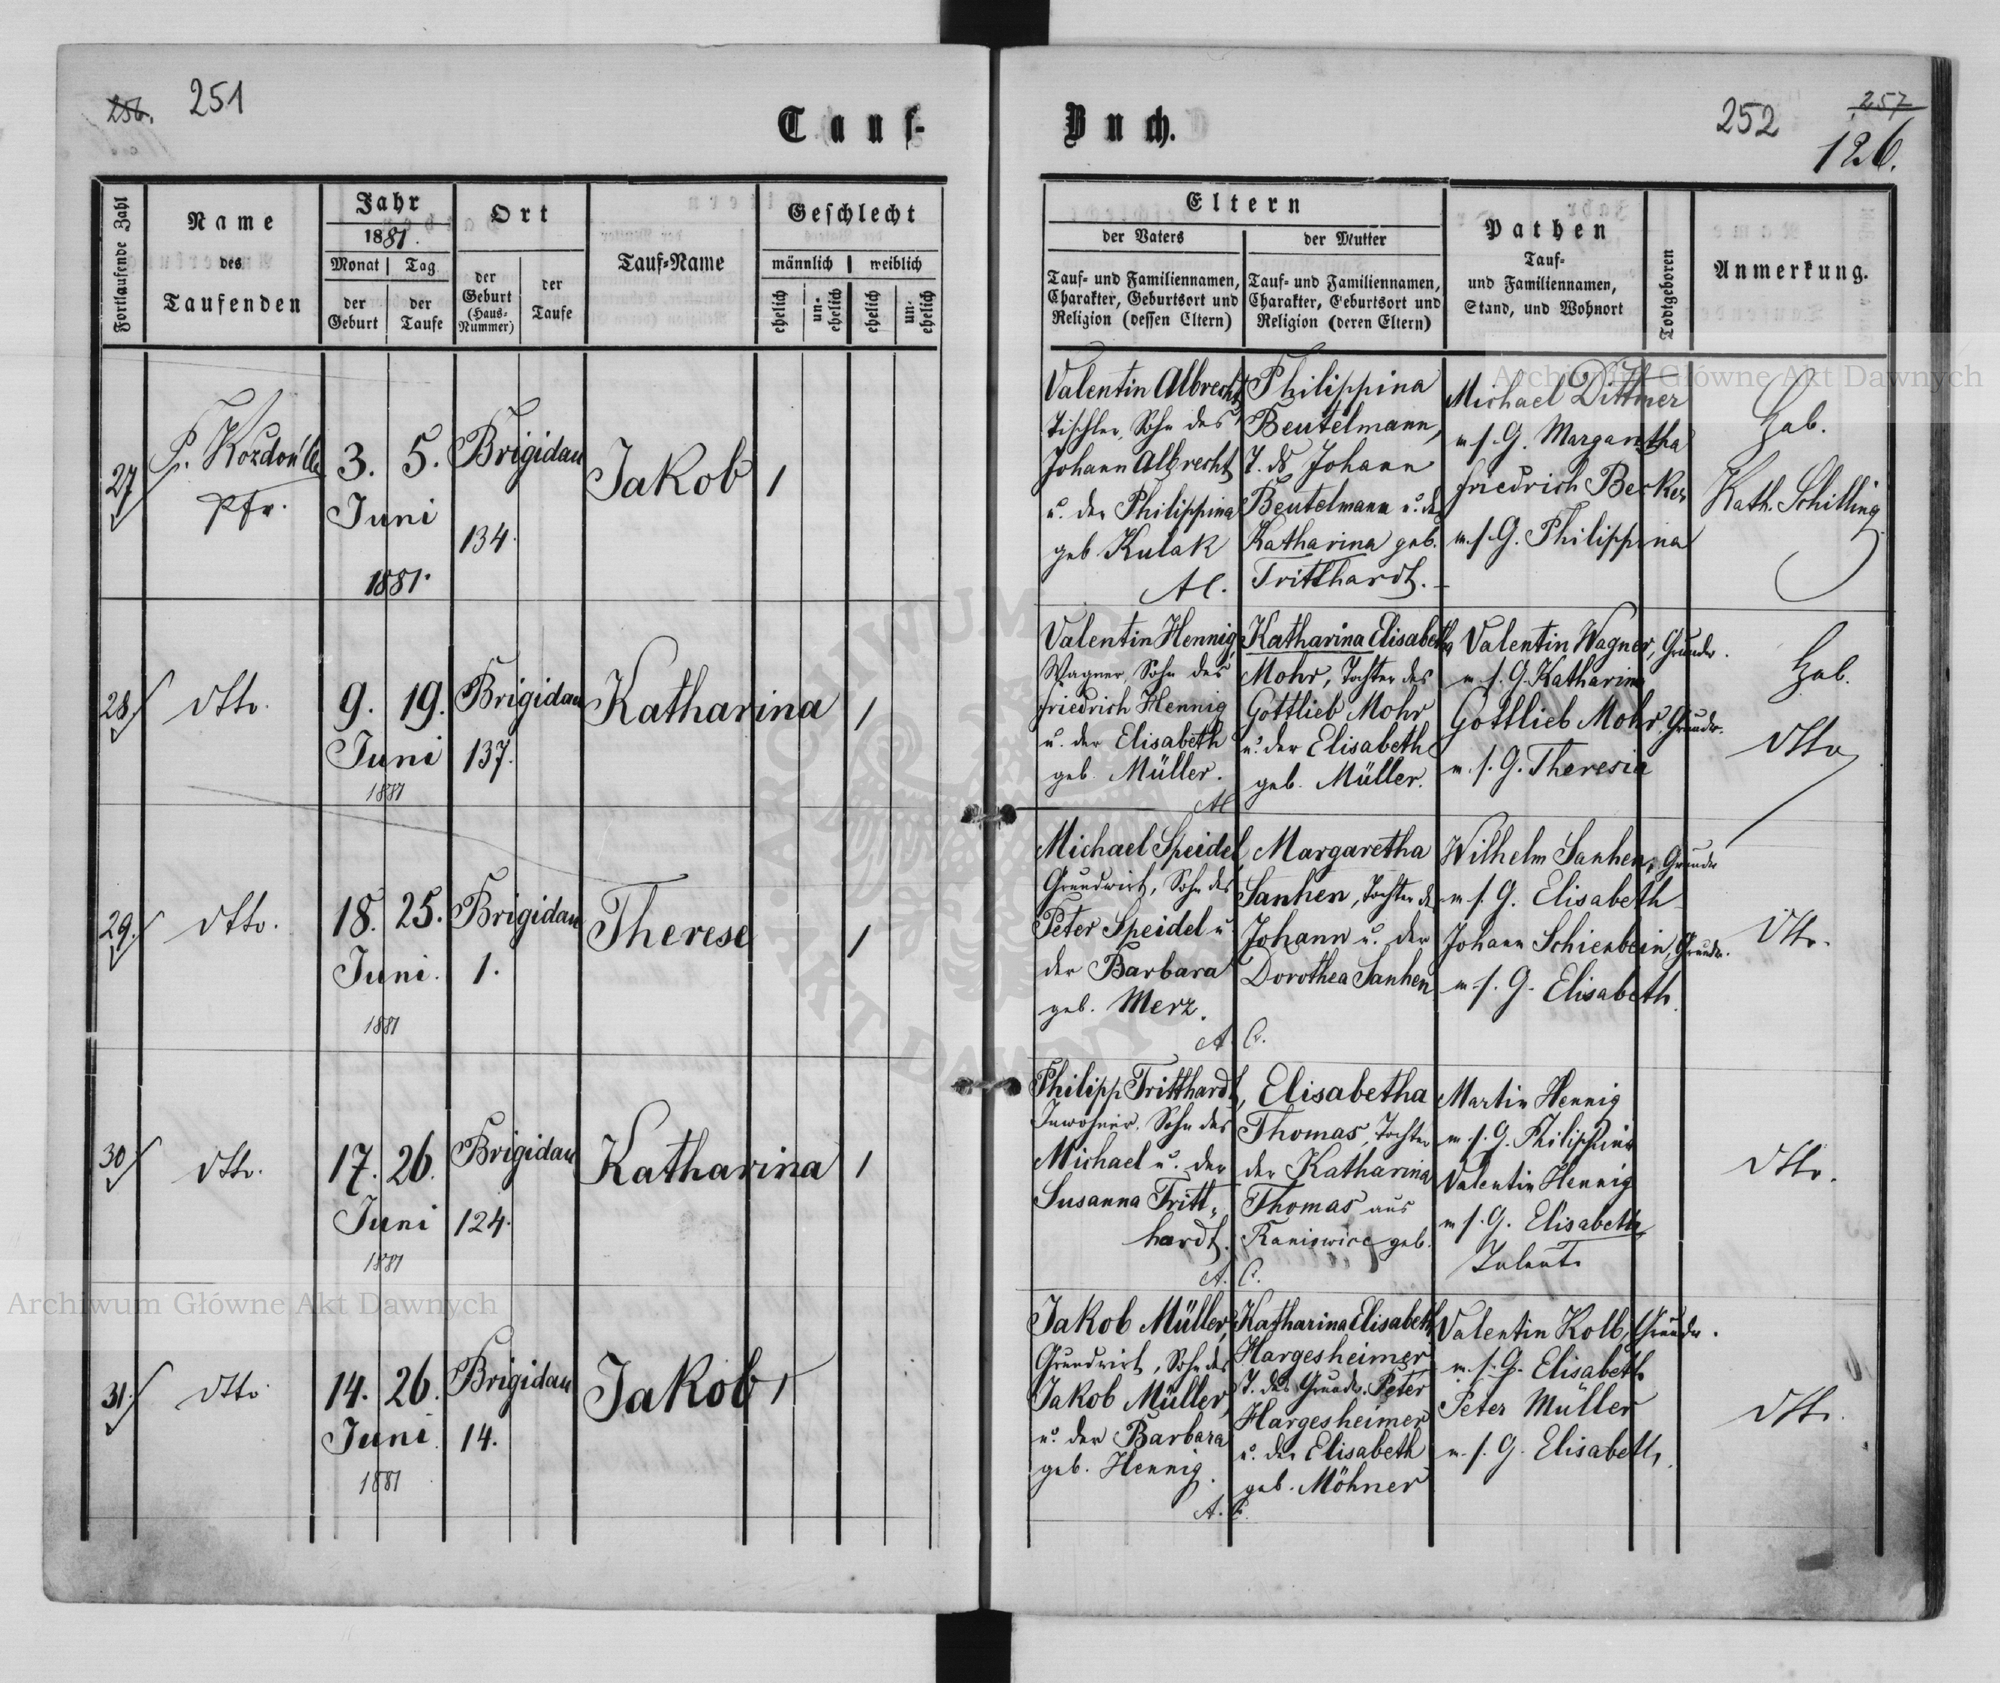 256. 251
Tauf-
Buch.
252 257
126.
Fortlaufende Zahl
Name
des
Taufenden
Jahr
1881.
Monat Tag
der Geburt
der Taufe
Ort
der Geburt (Haus-Nummer)
der Taufe
Tauf-Name
Geschlecht
männlich weiblich
ehelich un-ehelich ehelich un-ehelich
Eltern
der Vaters
der Mutter
Tauf- und Familiennamen,
Charakter, Geburtsort und
Religion (dessen Eltern)
Tauf- und Familiennamen,
Charakter, Geburtsort und
Religion (deren Eltern)
Pathen
Tauf-
und Familiennamen,
Stand, und Wohnort
Todtgeboren
Anmerkung.
27
Pfr.
3. 5.
Juni
1881.
Brigidau
134.
Jakob
1
Valentin Albrecht,
Tischler, Sohn des
Johann Albrecht
u. der Philippina
geb Kulak
Philippina
Beutelmann,
T. ds Johann
Beutelmann u. der
Katharina geb.
Tritthardt.
Michael Dittmer
m. s. G. Margaretha
Friedrich Becker
m. s. G. Philippina
Heb.
Kath. Schilling
28.
dtto.
9. 19.
Juni
1881
Brigidau
137.
Katharina
1
Valentin Hennig,
Wagner, Sohn des
Friedrich Hennig
u. der Elisabeth
geb. Müller.
Katharina Elisabeth
Mohr, Tochter des
Gottlieb Mohr
u. der Elisabeth
geb. Müller.
Valentin Wagner, Grundw.
m. s. G. Katharina
Gottlieb Mohr, Grundw.
m. s. G. Theresia
Heb.
dtto
29.
dtto.
18. 25.
Juni.
1881
Brigidau
1.
Therese
1
Michael Speidel
Grundwirt, Sohn des
Peter Speidel u
der Barbara
geb. Merz.
A. C.
Margaretha
Sanhen, Tochter des
Johann u. der
Dorothea Sanhen
Wilhelm Sanhen, Grundw
m. s. G. Elisabeth
Johann Schienbein, Grundw.
m. s. G. Elisabeth.
dtto.
30
dtto.
17. 26.
Juni
1881
Brigidau
124.
Katharina
1
Philipp Tritthardt,
Inwohner, Sohn des
Michael u. der
Susanna Tritt-
hardt.
A. C.
Elisabetha
Thomas, Tochter
der Katharina
Thomas aus
geb.
Martin Hennig
m. s. G. Philippina
Valentin Hennig
m. s. G. Elisabeth
dtto.
31.
dtto.
14. 26.
Juni.
1881
Brigidau
14.
Jakob
1
Jakob Müller,
Grundwirt, Sohn des
Jakob Müller,
u. der Barbara
geb. Hennig.
A. C.
Katharina Elisabeth
Hargesheimer
T. des Grundw. Peter
Hargesheimer
u. der Elisabeth
geb. Möhner
Valentin Kolb, Grundw.
m. s. G. Elisabeth
Peter Müller
m. s. G. Elisabeth.
dtto.
Archiwum Główne Akt Dawnych
Archiwum Główne Akt Dawnych
ARCHIWUM
AKT DAWNYCH